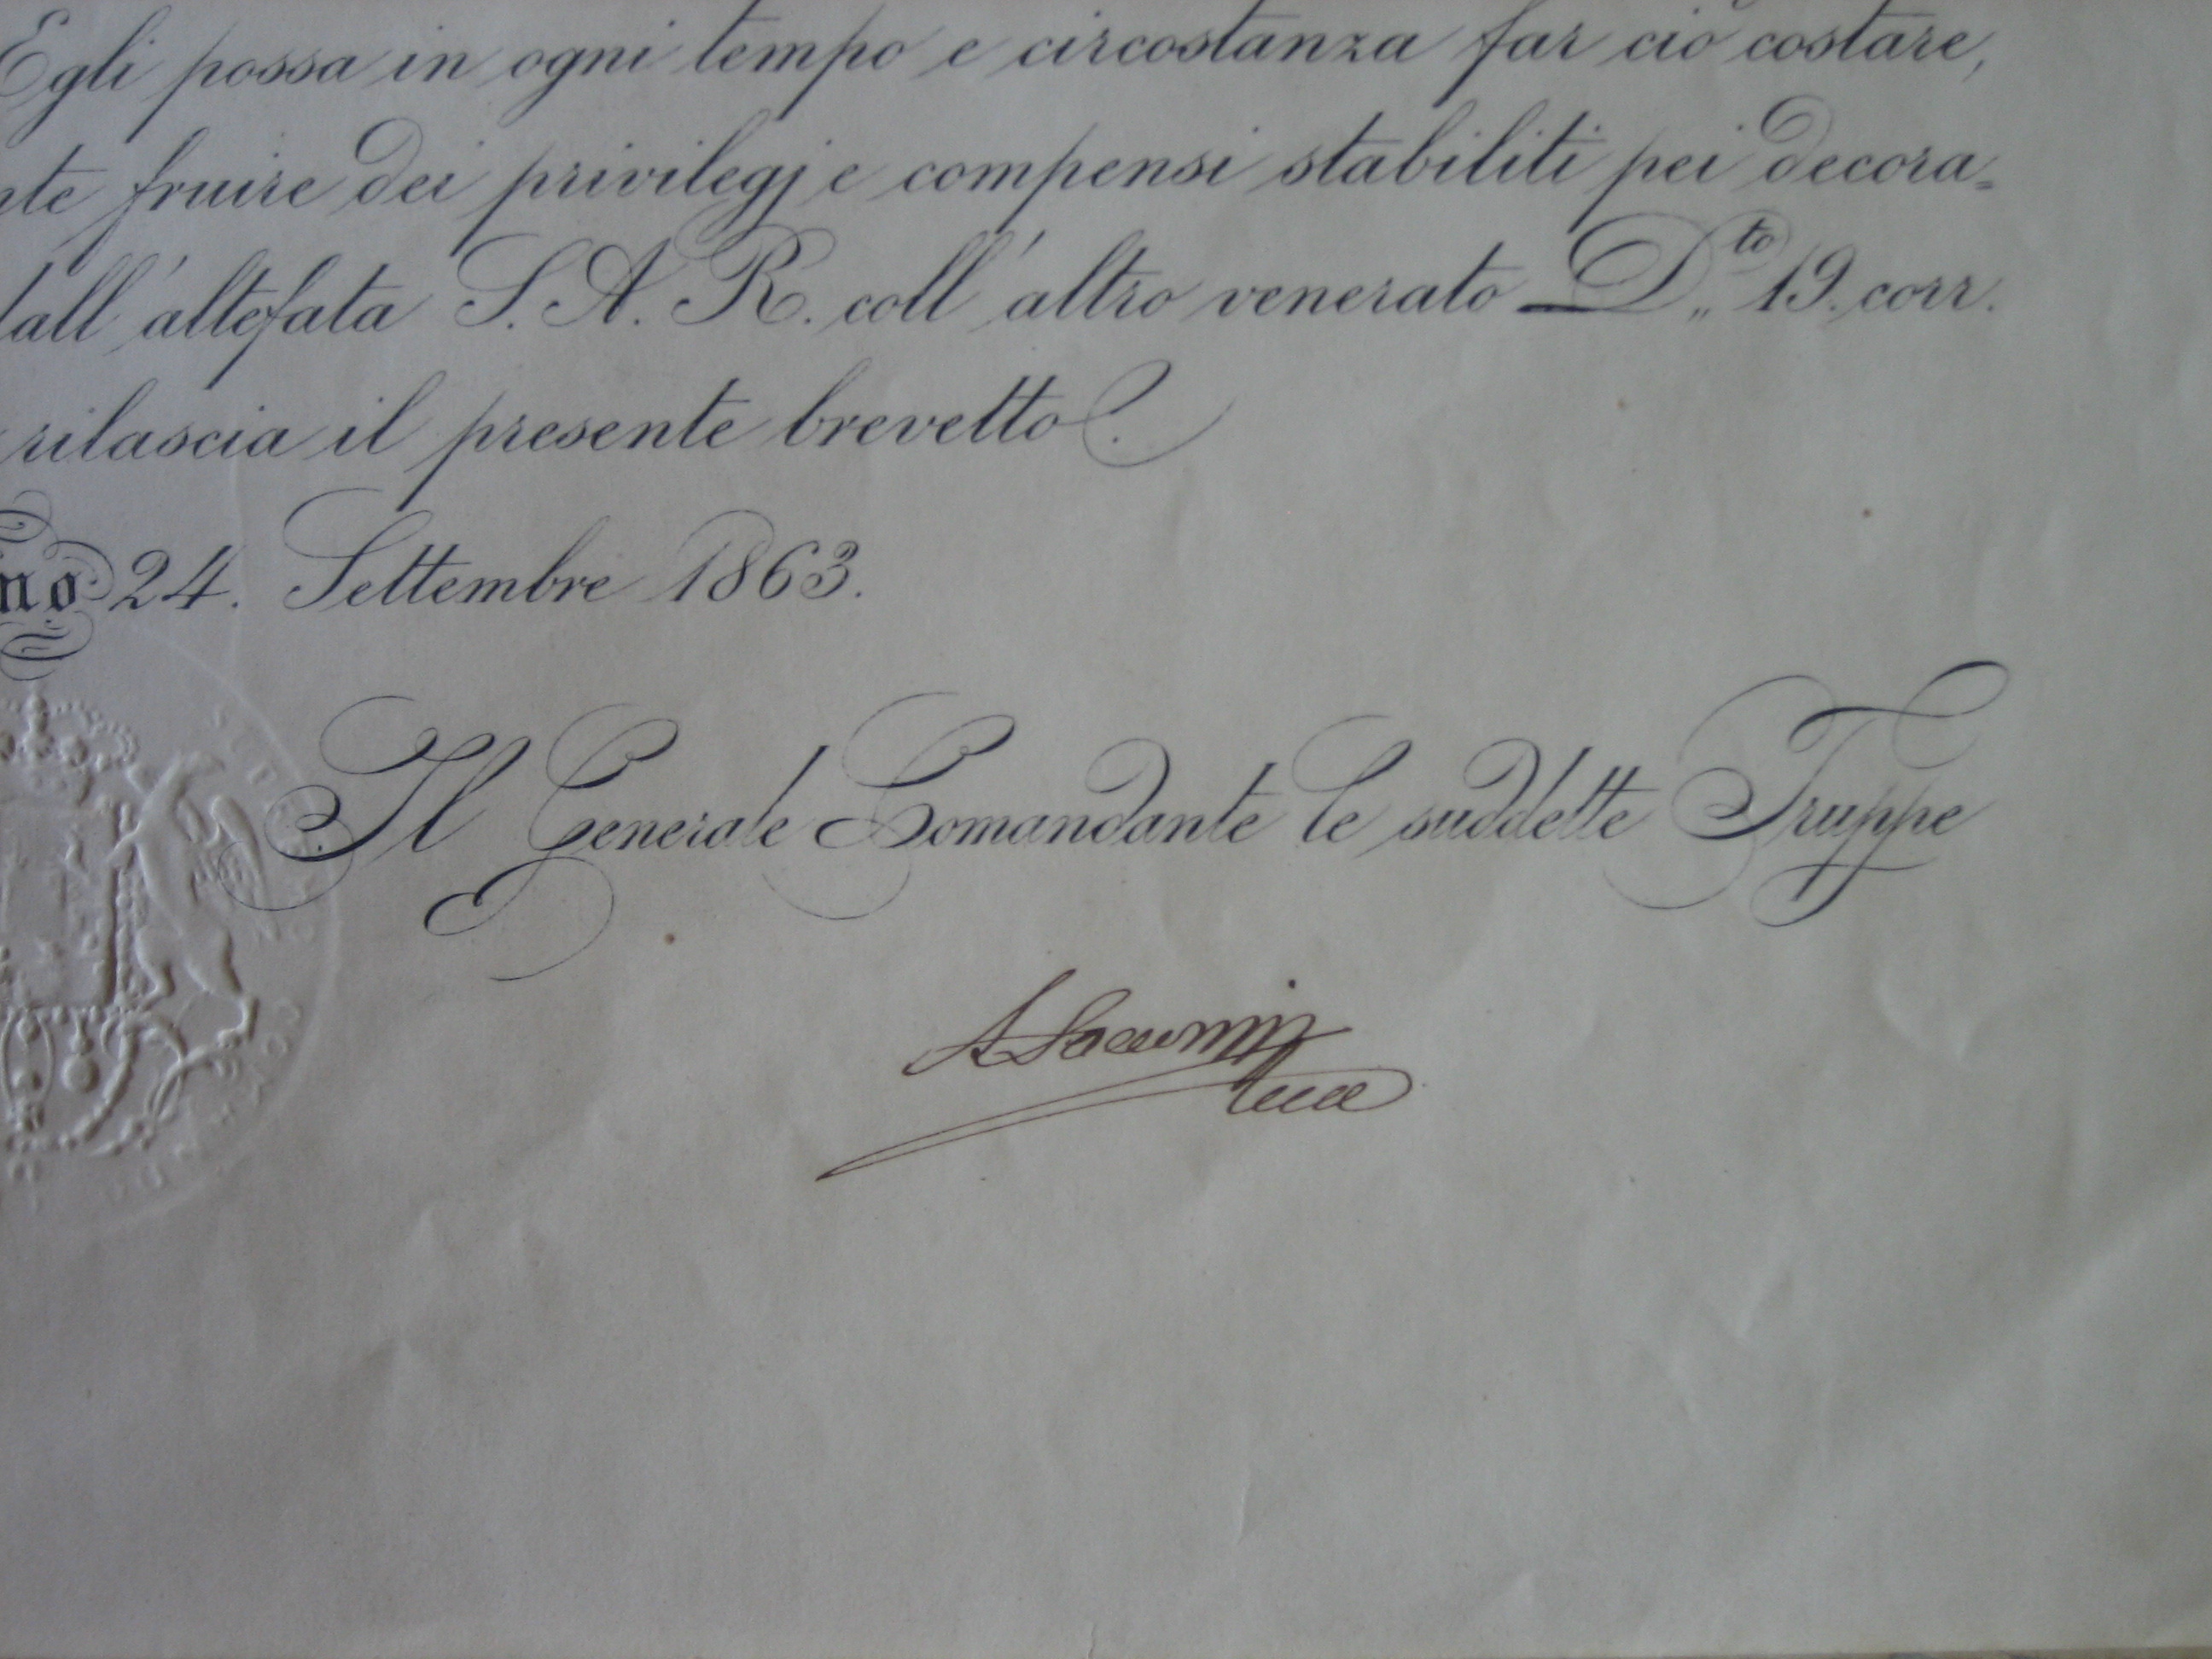 Egli possa in ogni tempo e circostanza far ciò costare,
nte fruire dei privilegj e compensi stabiliti pei decora=
dall'altefata S. A. R. coll'altro venerato D.to 19. corr.
rilascia il presente brevetto.
no 24. Settembre 1863.
Il Generale Comandante le suddette Truppe